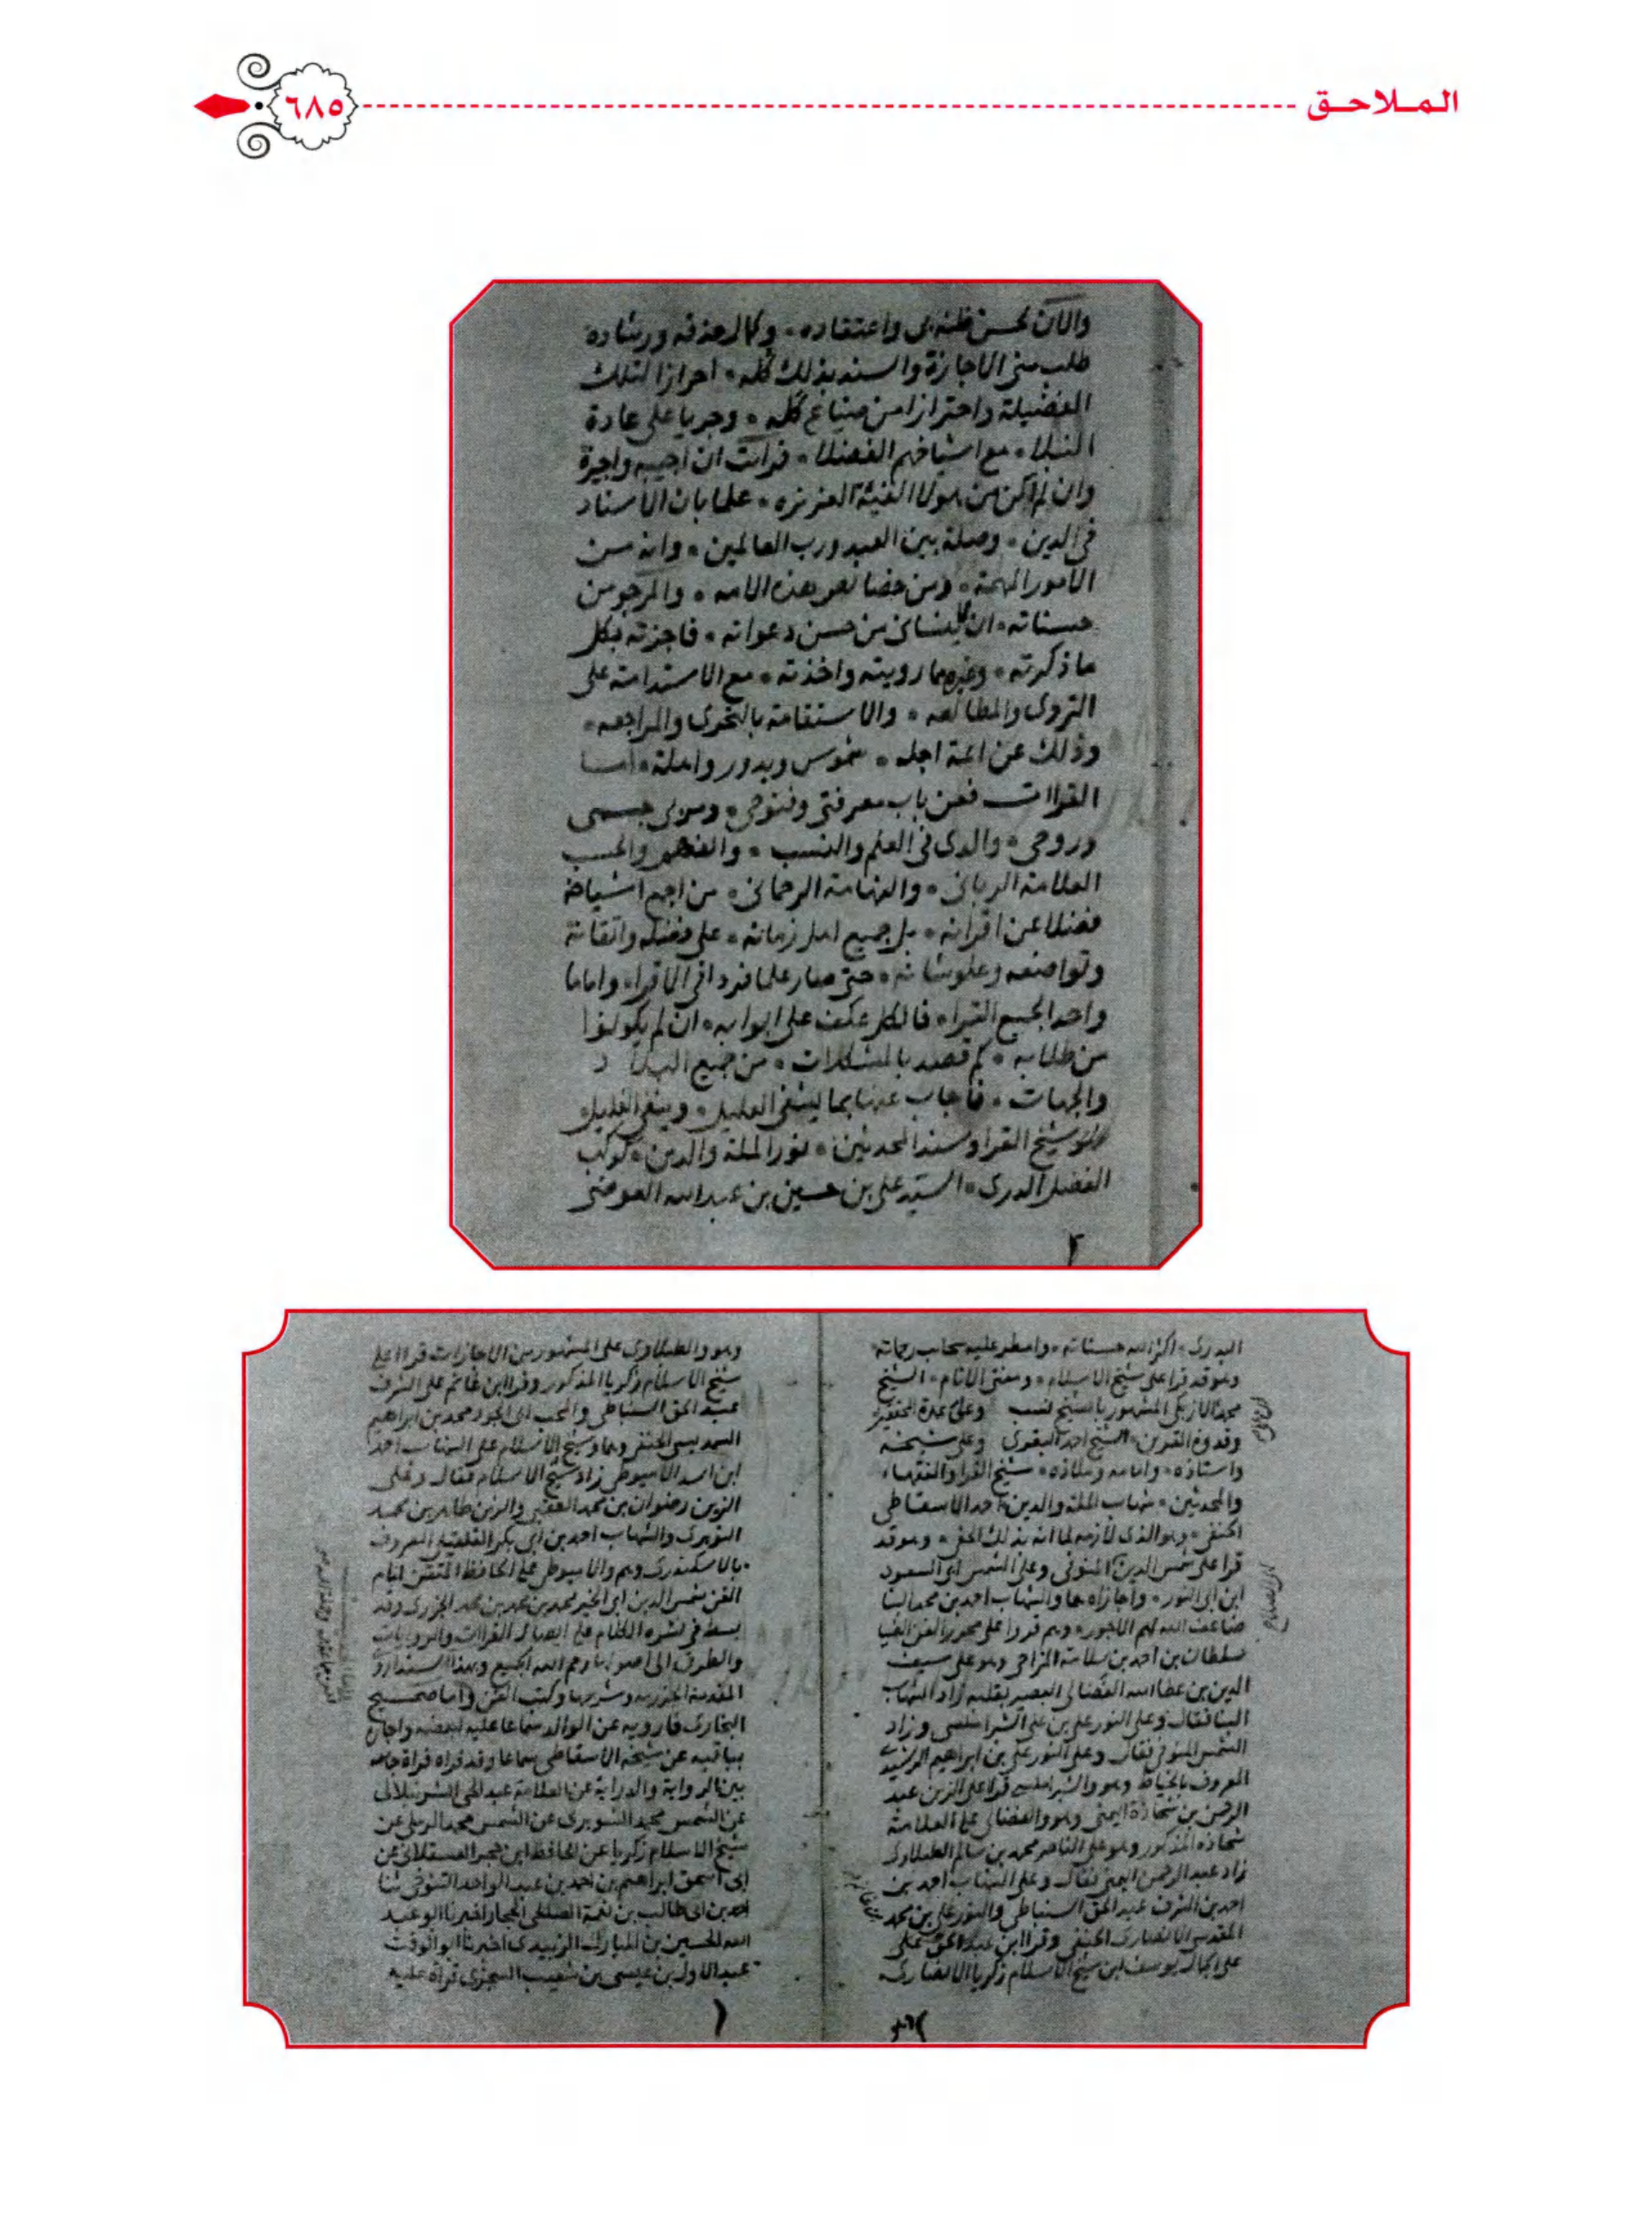 الملاحق
٦٨٥
والآن لحسن ظنه بى واعتقاده وكمال حذقه ورشاده
طلب منى الاجازة والسند بذلك كله احرازا لتلك
الفضيلة واحترازا من ضياع كله وجريا على عادة
النبلا مع اشياخهم الفضلا فرايت ان اجيبه واجيزه
وان لم اكن من هولا الفئة العزيزه علما بان الاسناد
فى الدين وصلة بين العبد ورب العالمين وانه من
الامور المهمة ومن خصائص هذه الامه والمرجو من
حسناته ان لا ينسانى من حسن دعواته فاجزته بكل
ما ذكرته وغيره مما رويته واخذته مع الاستدامة على
التروى والمطالعه والاستقامة بالتحرى والمراجعه
وذلك عن ائمة اجله شموس وبدور واهلة اما
القراات فعن باب معرفتى وفتوحى وسرى جسمى
وروحى والدى فى العلم والنسب والفهم والحسب
العلامة الربانى والفهامة الرحمانى من اجمع اشياخه
فضلا عن اقرانه بل جميع اهل زمانه على فضله واتقانه
وتواضعه وعلو شانه حتى صار علما فردا فى الاقراء واماما
واحدا لجميع القراء فالكل عكف على ابوابه ان لم يكونوا
من طلابه كم قصد بالمشكلات من جميع البلاد
والجهات فاجاب عنها بما يشفى العليل وينفى الغليل
شيخ القرا وسند المحدثين نور الملة والدين كوكب
الفضل الدرى السيد على بن حسين بن عبد الله العوضى
٢
البدرى اكثر الله حسناته وامطر عليه سحايب رحماته
وهو قد قرا على شيخ الاسلام ومفتى الانام الشيخ
محمد الازبكى المشهور باشيخ نسب وعلى عمدة المحققين
وقدوة المقرين الشيخ احمد البقرى وعلى شيخه
واستاذه وامامه وملاذه شيخ القرا والفقهاء
والمحدثين شهاب الملة والدين احمد الاسقاطى
الحنفى وهو الذى لازمه لما انه بذلك احق وهو قد
قرا على شمس الدين المنوفى وعلى الشمس ابى السعود
ابن ابى النور واجازاه هما والشهاب احمد بن محمد البنا
ضاعف الله لهم الاجور وهم قروا على محرر الفن الضيا
سلطان بن احمد بن سلامة المزاحى وهو على سيف
الدين بن عطا الله الفضالى البصير بقلبه زاد الشهاب
البنا فقال وعلى النور على بن على الشبراملسى وزاد
الشمس المنوفى فقال وعلى النور على بن ابراهيم الرشيدى
المعروف بالخياط وهو والشبراملسى قرا على الزين عبد
الرحمن بن شحاذة اليمنى وهو والفضالى على العلامة
شحاذة المذكور وهو على الناصر محمد بن سالم الطبلاوى
زاد عبد الرحمن اليمنى فقال وعلى الشهاب احمد بن
احمد بن الشرف عبد الحق السنباطى والنور على بن محمد
المقدسى الانصارى الحنفى وقرا ابن عبد الحق على
على الجمال يوسف ابن شيخ الاسلام زكريا الانصارى
وهو والطبلاوى على المشهور من الاجازات قراا على
شيخ الاسلام زكريا المذكور وقرا ابن غانم على الشرف
عبد الحق السنباطى والمحب ابى الجود محمد بن ابراهيم
السمديسى الحنفى وهما وشيخ الاسلام على الشهاب احمد
ابن اسد الاميوطى زاد شيخ الاسلام فقال وعلى
الزين رضوان بن محمد العقبى والزين طاهر بن محمد
النويرى والشهاب احمد بن ابى بكر القلقيلى المعروف
بالاسكندرى وهم والاميوطى على الحافظ المتقن امام
الفن شمس الدين ابى الخير محمد بن محمد بن محمد الجزرى وقد
بسط فى نشره الكلام على اتصال القراات والروايات
والطرق الى اصولها رحم الله الجميع وبهذا السند اروى
المقدمة الجزريه وشروحها وكتب الفن واما صحيح
البخارى فارويه عن الوالد سماعا عليه لبعضه واجازة
بباقيه عن شيخه الاسقاطى سماعا وقد قراه قراة جامعة
بين الرواية والدراية عن العلامة عبد الحى الشرنبلالى
عن الشمس محمد الشوبرى عن الشمس محمد الرملى عن
شيخ الاسلام زكريا عن الحافظ ابن حجر العسقلانى عن
ابى اسحق ابراهيم بن احمد بن عبد الواحد التنوخى ثنا
احمد بن ابى طالب بن نعمة الصالحى الحجار اخبرنا ابو عبد
الله الحسين بن المبارك الزبيدى اخبرنا ابو الوقت
عبد الاول بن عيسى بن شعيب السجزى قراة عليه